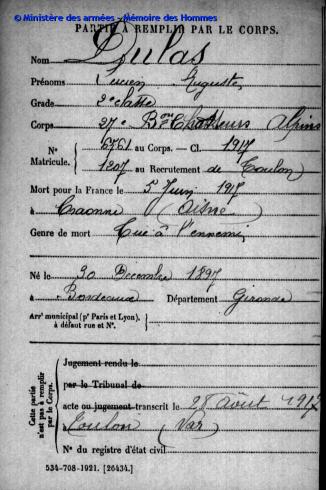 © Ministère des armées - Mémoire des Hommes
PARTIE À REMPLIR PAR LE CORPS.
Nom Dulas
Prénoms Lucien Auguste
Grade 2e classe
Corps 27e Bon Chasseurs Alpins
N° 6761 au Corps. — Cl. 1917
Matricule. 1207 au Recrutement de Toulon
Mort pour la France le 5 Juin 1917
à Craonne (Aisne)
Genre de mort Tué à l'ennemi
Né le 30 Décembre 1897
à Bordeaux Département Gironde
Arrt municipal (pr Paris et Lyon),
à défaut rue et N°.
Cette partie
n'est pas à remplir
par le Corps.
Jugement rendu le
par le Tribunal de
acte ou jugement transcrit le 28 Août 1917
Toulon (Var)
N° du registre d'état civil
534-708-1921. [26434.]